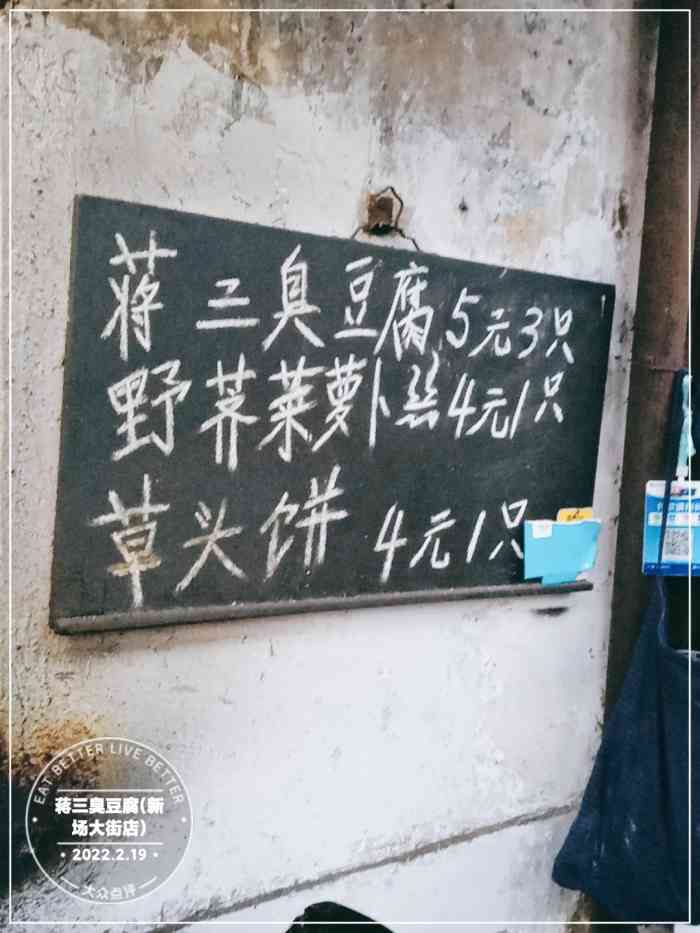 蒋三臭豆腐 5元3只
野荠菜萝卜丝4元1只
草头饼 4元1只
EAT BETTER LIVE BETTER
蒋三臭豆腐(新
场大街店)
·2022.2.19·
大众点评